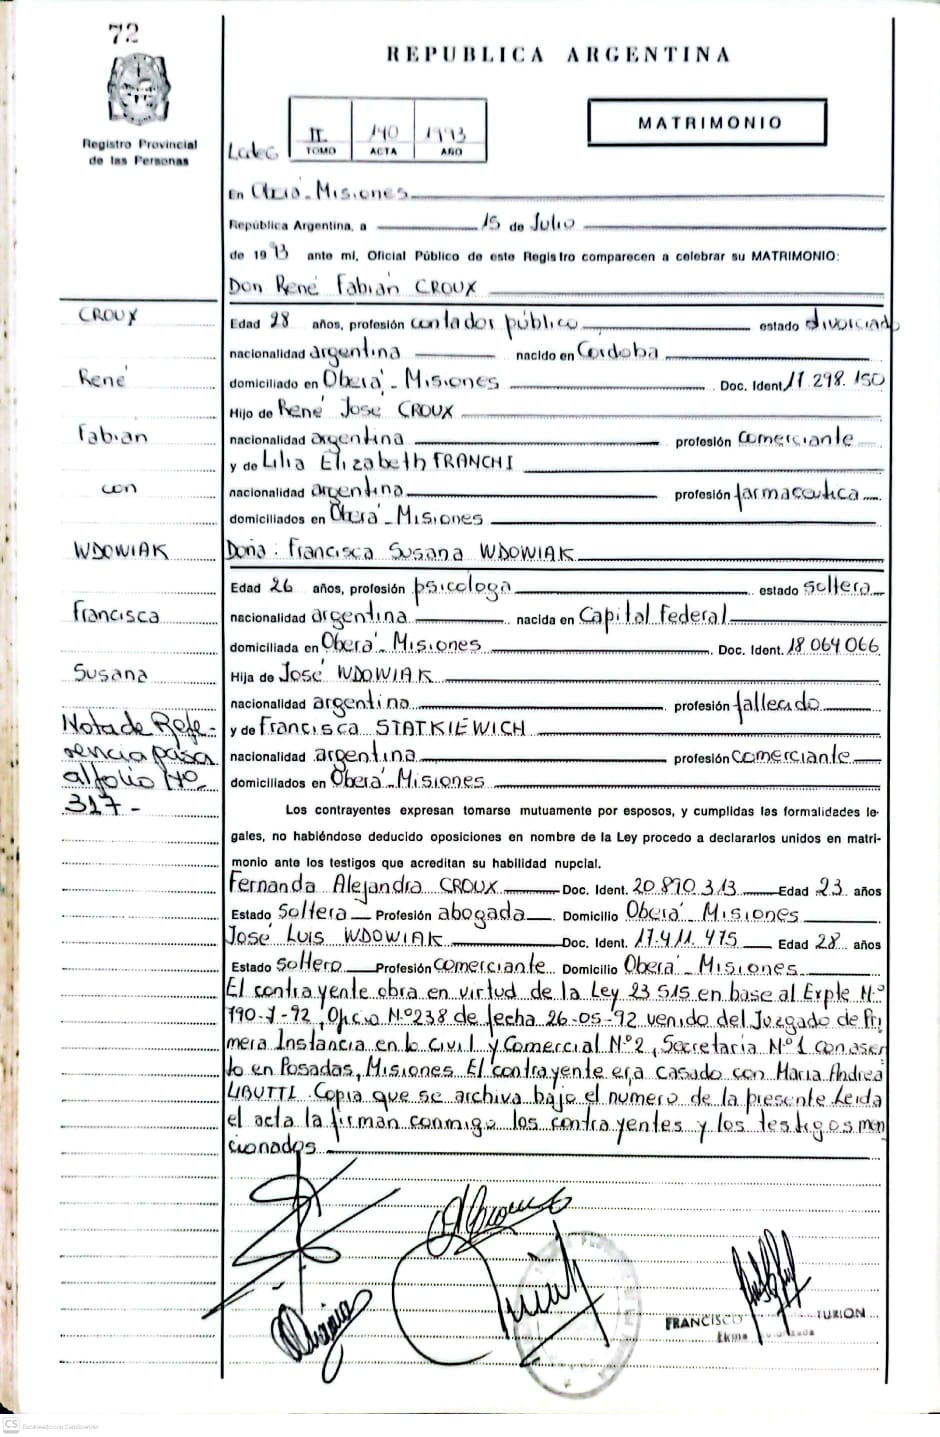 72
REPUBLICA ARGENTINA
Registro Provincial
de las Personas
II
TOMO
190
ACTA
1993
AÑO
MATRIMONIO
En Oberá - Misiones
República Argentina, a 15 de Julio
de 1993 ante mi, Oficial Público de este Registro comparecen a celebrar su MATRIMONIO:
Don René Fabián CROUX
CROUX
René
Fabian
con
WDOWIAK
Francisca
Susana
Nota de Refe-
rencia pasa
al folio Nº
317-
Edad 28 años, profesión contador público estado divorciado
nacionalidad argentina nacido en Cordoba
domiciliado en Oberá - Misiones Doc. Ident. 17.298.150
Hijo de René José CROUX
nacionalidad argentina profesión comerciante
y de Lilia Elizabeth FRANCHI
nacionalidad argentina profesión farmaceutica
domiciliados en Oberá - Misiones
Doña: Francisca Susana WDOWIAK
Edad 26 años, profesión psicologa estado soltera
nacionalidad argentina nacida en Capital Federal
domiciliada en Oberá - Misiones Doc. Ident. 18 064 066
Hija de José WDOWIAK
nacionalidad argentina profesión fallecido
y de Francisca STATKIEWICH
nacionalidad argentina profesión comerciante
domiciliados en Oberá - Misiones
Los contrayentes expresan tomarse mutuamente por esposos, y cumplidas las formalidades le-
gales, no habiéndose deducido oposiciones en nombre de la Ley procedo a declararlos unidos en matri-
monio ante los testigos que acreditan su habilidad nupcial.
Fernanda Alejandra CROUX Doc. Ident. 20 890 313 Edad 23 años
Estado soltera Profesión abogada Domicilio Oberá - Misiones
José Luis WDOWIAK Doc. Ident. 17.411.475 Edad 28 años
Estado soltero Profesión comerciante Domicilio Oberá - Misiones
El contrayente obra en virtud de la Ley 23 515 en base al Expte N.º
790-7-92, Oficio N.º 238 de fecha 26-05-92 venido del Juzgado de Pri
mera Instancia en lo Civil y Comercial N.º 2, Secretaria N.º 1 con asien
to en Posadas, Misiones El contrayente era casado con Maria Andrea
LIBUTTI Copia que se archiva bajo el numero de la presente Leida
el acta la firman conmigo los contrayentes y los testigos men
cionados
FRANCISCO TURION
CS Escaneado con CamScanner